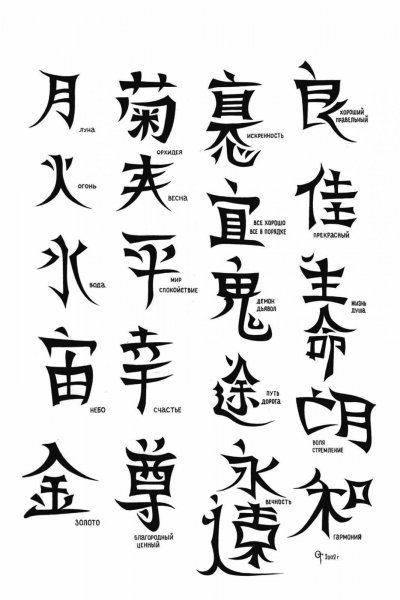 月
ЛУНА
火
ОГОНЬ
水
ВОДА
宙
НЕБО
金
ЗОЛОТО
菊
ОРХИДЕЯ
ВЕСНА
平
МИР
СПОКОЙСТВИЕ
幸
СЧАСТЬЕ
尊
БЛАГОРОДНЫЙ
ЦЕННЫЙ
ИСКРЕННОСТЬ
宜
ВСЕ ХОРОШО
ВСЕ В ПОРЯДКЕ
鬼
ДЕМОН
ДЬЯВОЛ
途
ПУТЬ
ДОРОГА
永
遠
ВЕЧНОСТЬ
良
ХОРОШИЙ
ПРАВЕЛЬНЫЙ
佳
ПРЕКРАСНЫЙ
生
命
ЖИЗНЬ
ДУША
ВОЛЯ
СТРЕМЛЕНИЕ
和
ГАРМОНИЯ